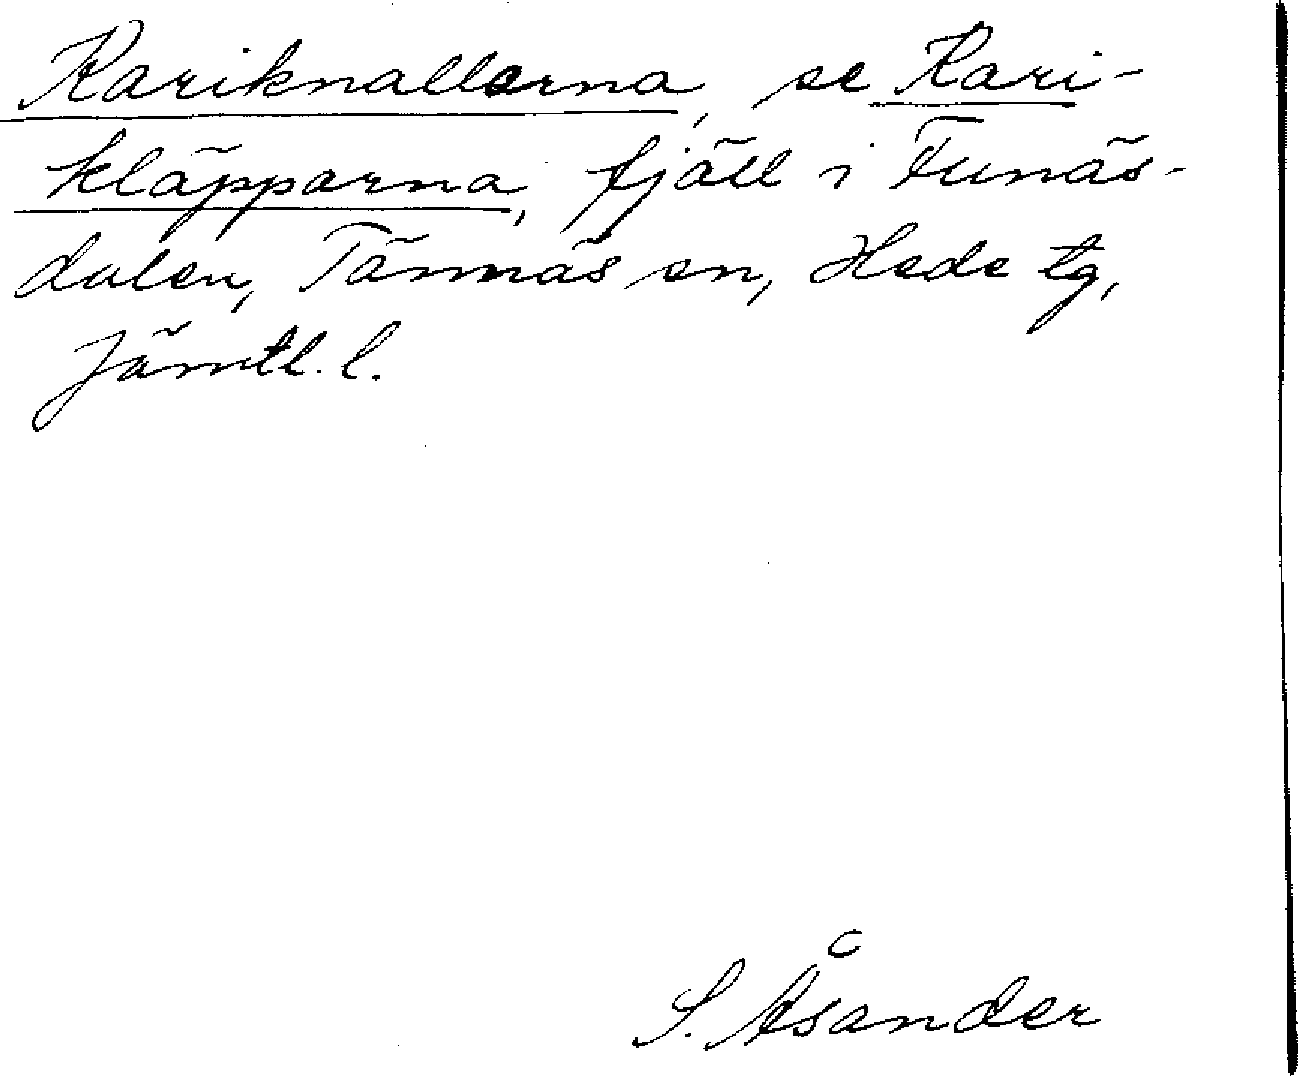 Kariknallarna, se Kari-
kläpparna, fjäll i Funäs-
dalen, Tännäs sn, Hede tg,
Jämtl. l.
S. Åsander